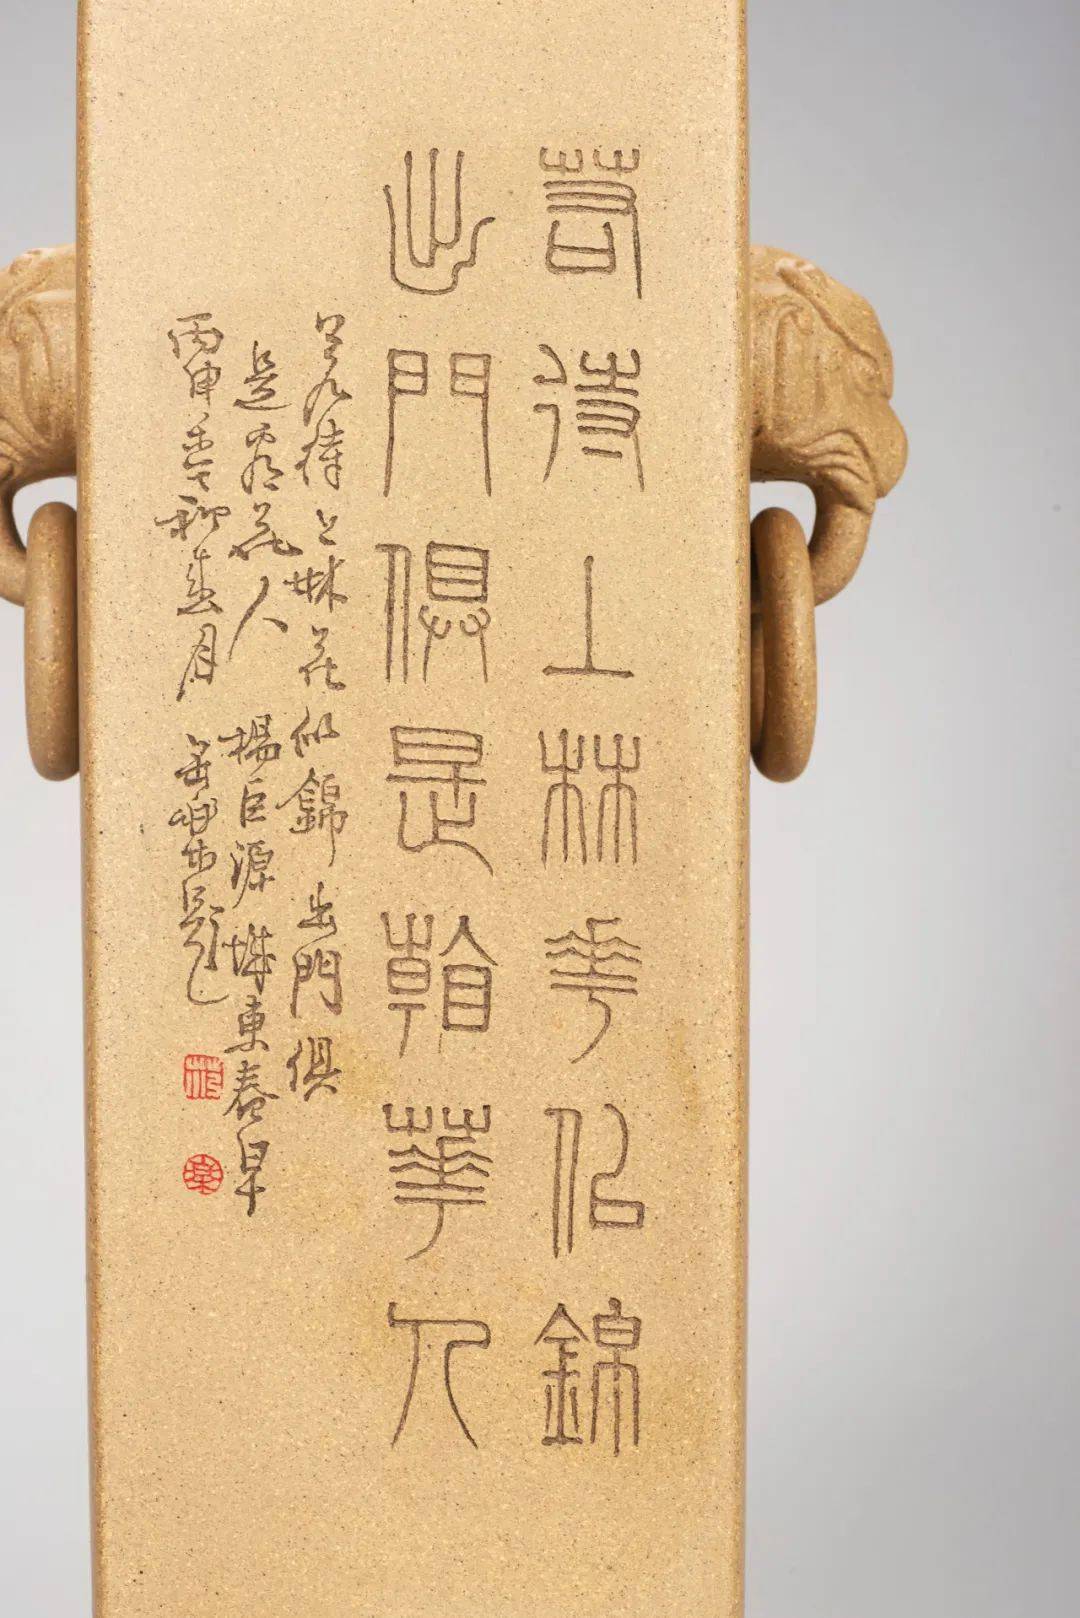 若待上林華佀錦
出門俱是看華人
若待上林花似錦 出門俱
是看花人 楊巨源 城東春早
丙申 春月 題